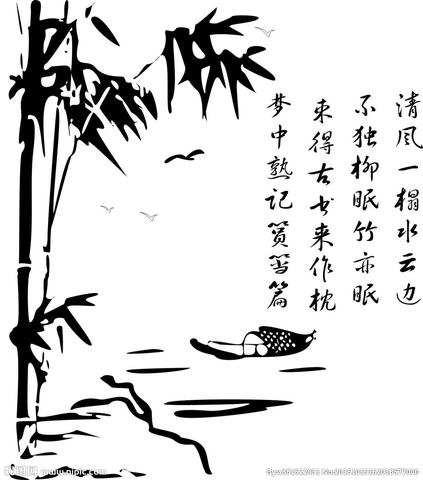 清风一榻水云边
不独柳眠竹亦眠
束得古书来作枕
梦中熟记筼筜篇
昵图网 www.nipic.com